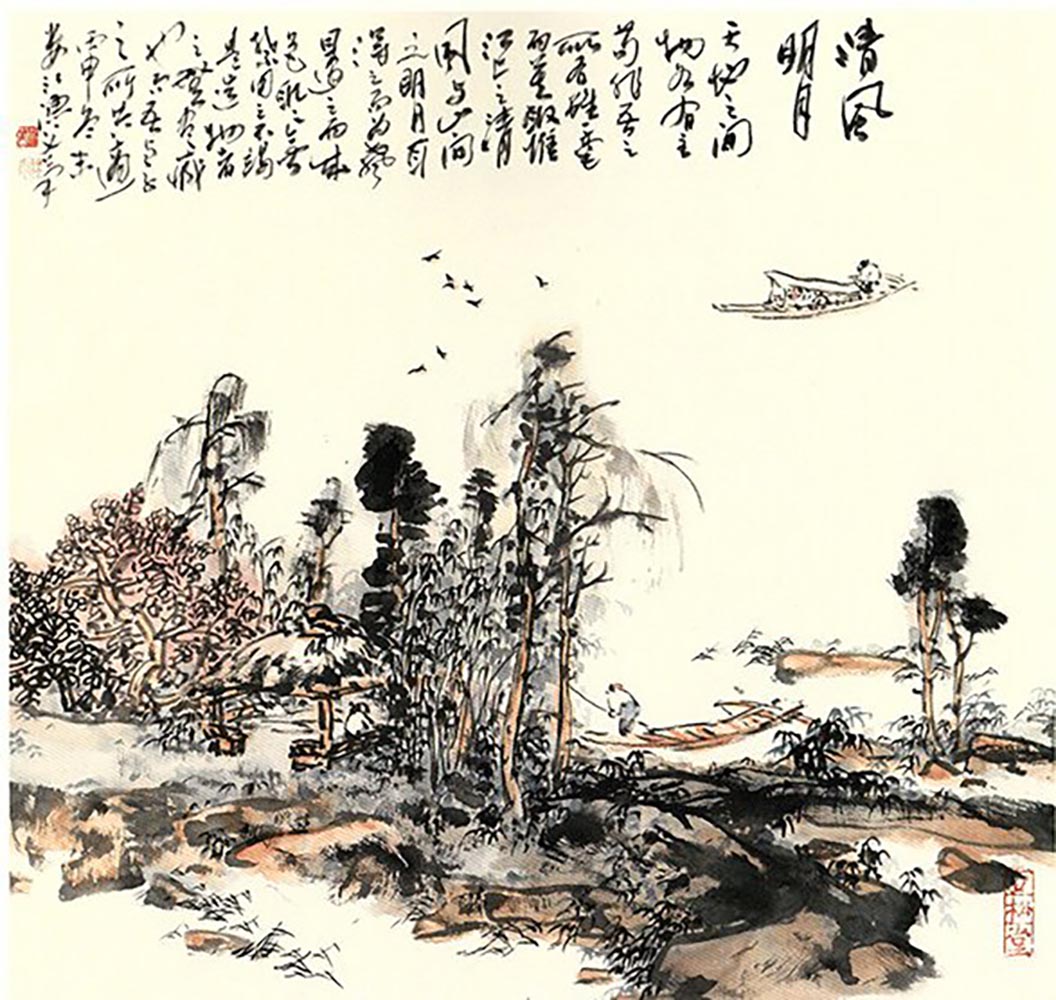 清风
明月
天地之间
物各有主
苟非吾之
所有虽一毫
而莫取惟
江上之清
风与山间
之明月耳
得之而为声
目遇之而成
色取之无
禁用之不竭
是造物者
之无尽藏
也而吾与子
之所共适
丙申冬末